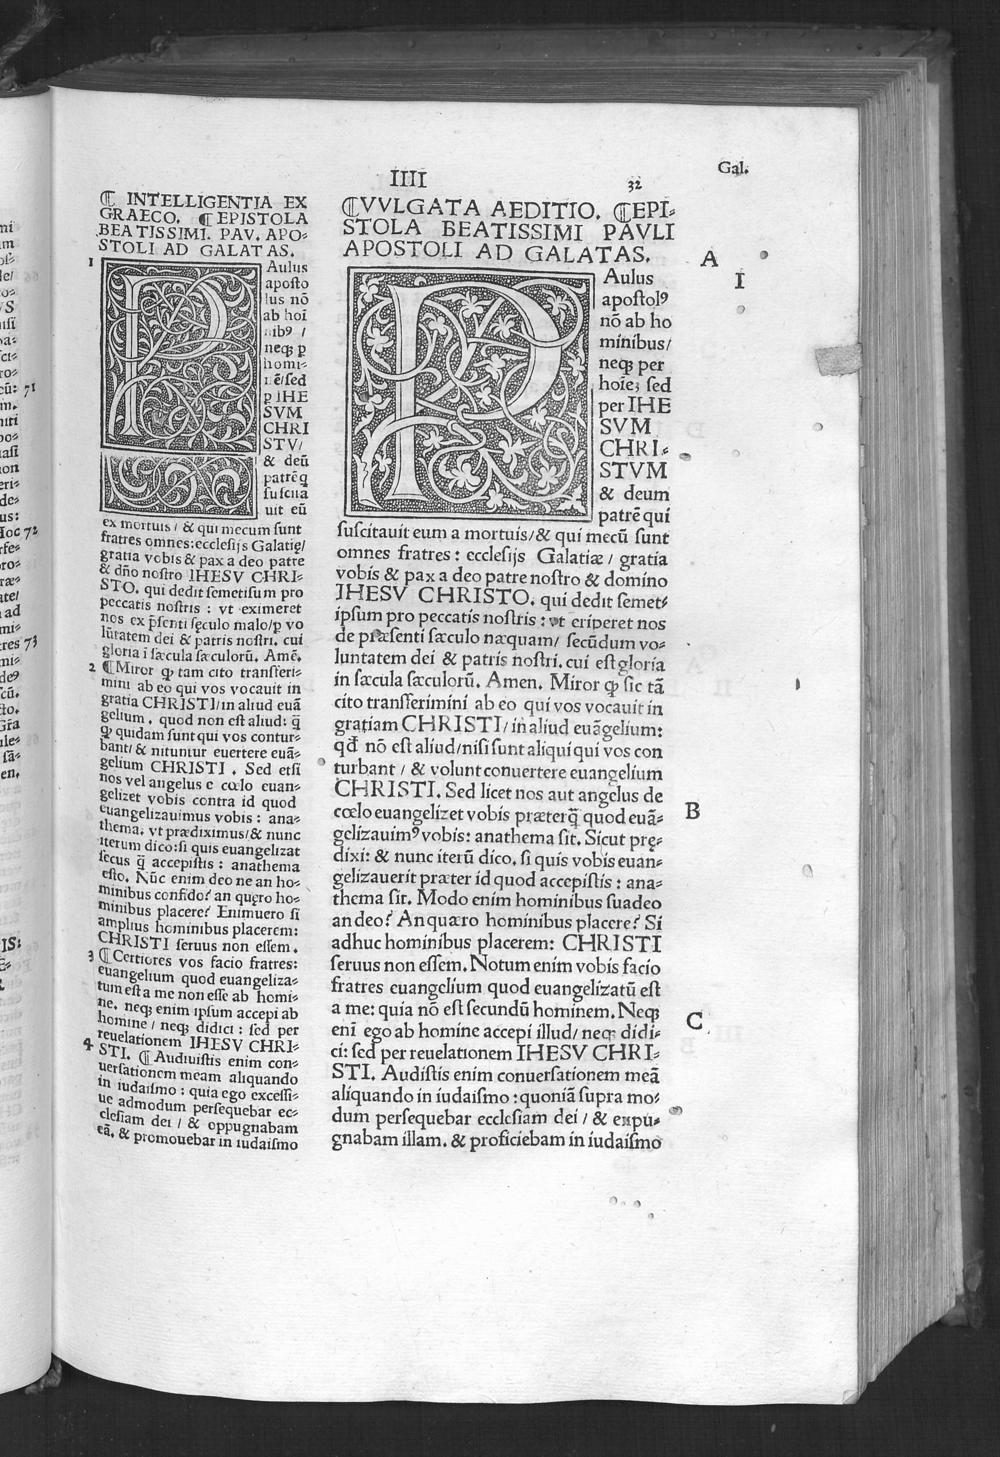 Gal.
IIII
32
¶ INTELLIGENTIA EX
GRAECO. ¶ EPISTOLA
BEATISSIMI. PAV. APO⸗
STOLI AD GALATAS.
1
Aulus
aposto
lus nō
ab hoī
nibꝰ /
neqꝫ ꝑ
homi⸗
nē/sed
ꝑ IHE
SVM
CHRI
STV/
& deū
patrē q
suscita
uit eū
ex mortuis / & qui mecum sunt
fratres omnes: ecclesijs Galatię/
gratia vobis & pax a deo patre
& dño nostro IHESV CHRI⸗
STO. qui dedit semetisum pro
peccatis nostris : vt eximeret
nos ex p̄senti sęculo malo/ꝑ vo
lūtatem dei & patris nostri. cui
gloria ī sæcula sæculorū. Amē.
2 ¶ Miror ꝙ tam cito transferi⸗
mini ab eo qui vos vocauit in
gratia CHRISTI/in aliud euā
gelium . quod non est aliud: q̄
ꝙ quidam sunt qui vos contur⸗
bant/ & nituntur euertere euā⸗
gelium CHRISTI . Sed etsi
nos vel angelus e cœlo euan⸗
gelizet vobis contra id quod
euangelizauimus vobis : ana⸗
thema. vt prædiximus/& nunc
iterum dico: si quis euangelizat
secus q̄ accepistis : anathema
esto. Nūc enim deo ne an ho⸗
minibus confido? an quęro ho⸗
minibus placere? Enimuero si
amplius hominibus placerem:
CHRISTI seruus non essem.
3 ¶ Certiores vos facio fratres:
euangelium quod euangeliza⸗
tum est a me non esse ab homi⸗
ne. neqꝫ enim ipsum accepi ab
homine / neqꝫ didici : sed per
reuelationem IHESV CHRI⸗
4 STI. ¶ Audiuistis enim con⸗
uersationem meam aliquando
in iudaismo : quia ego excessi⸗
ue admodum persequebar ec⸗
clesiam dei / & oppugnabam
eā. & promouebar in iudaismo
¶VVLGATA AEDITIO. ¶EPI⸗
STOLA BEATISSIMI PAVLI
APOSTOLI AD GALATAS.
Aulus
apostolꝰ
nō ab ho
minibus/
neqꝫ per
hoīeꝫ sed
per IHE
SVM
CHRI⸗
STVM
& deum
patrē qui
suscitauit eum a mortuis/& qui mecū sunt
omnes fratres : ecclesijs Galatiæ / gratia
vobis & pax a deo patre nostro & domino
IHESV CHRISTO. qui dedit semet⸗
ipsum pro peccatis nostris : vt eriperet nos
de præsenti sæculo næquam/ secūdum vo⸗
luntatem dei & patris nostri. cui est gloria
in sæcula sæculorū. Amen. Miror ꝙ sic tā
cito transferimini ab eo qui vos vocauit in
gratiam CHRISTI/ in aliud euāgelium:
qđ nō est aliud/nisi sunt aliqui qui vos con
turbant / & volunt conuertere euangelium
CHRISTI. Sed licet nos aut angelus de
cœlo euangelizet vobis præterq̄ quod euā⸗
gelizauimꝰ vobis: anathema sit. Sicut prę⸗
dixi: & nunc iterū dico. si quis vobis euan⸗
gelizauerit præter id quod accepistis : ana⸗
thema sit. Modo enim hominibus suadeo
an deo? An quæro hominibus placere? Si
adhuc hominibus placerem: CHRISTI
seruus non essem. Notum enim vobis facio
fratres euangelium quod euangelizatū est
a me: quia nō est secundū hominem. Neqꝫ
enī ego ab homine accepi illud/ neqꝫ didi⸗
ci: sed per reuelationem IHESV CHRI⸗
STI. Audistis enim conuersationem meā
aliquando in iudaismo : quoniā supra mo⸗
dum persequebar ecclesiam dei / & expu⸗
gnabam illam. & proficiebam in iudaismo
A
I
B
C
71
72
73